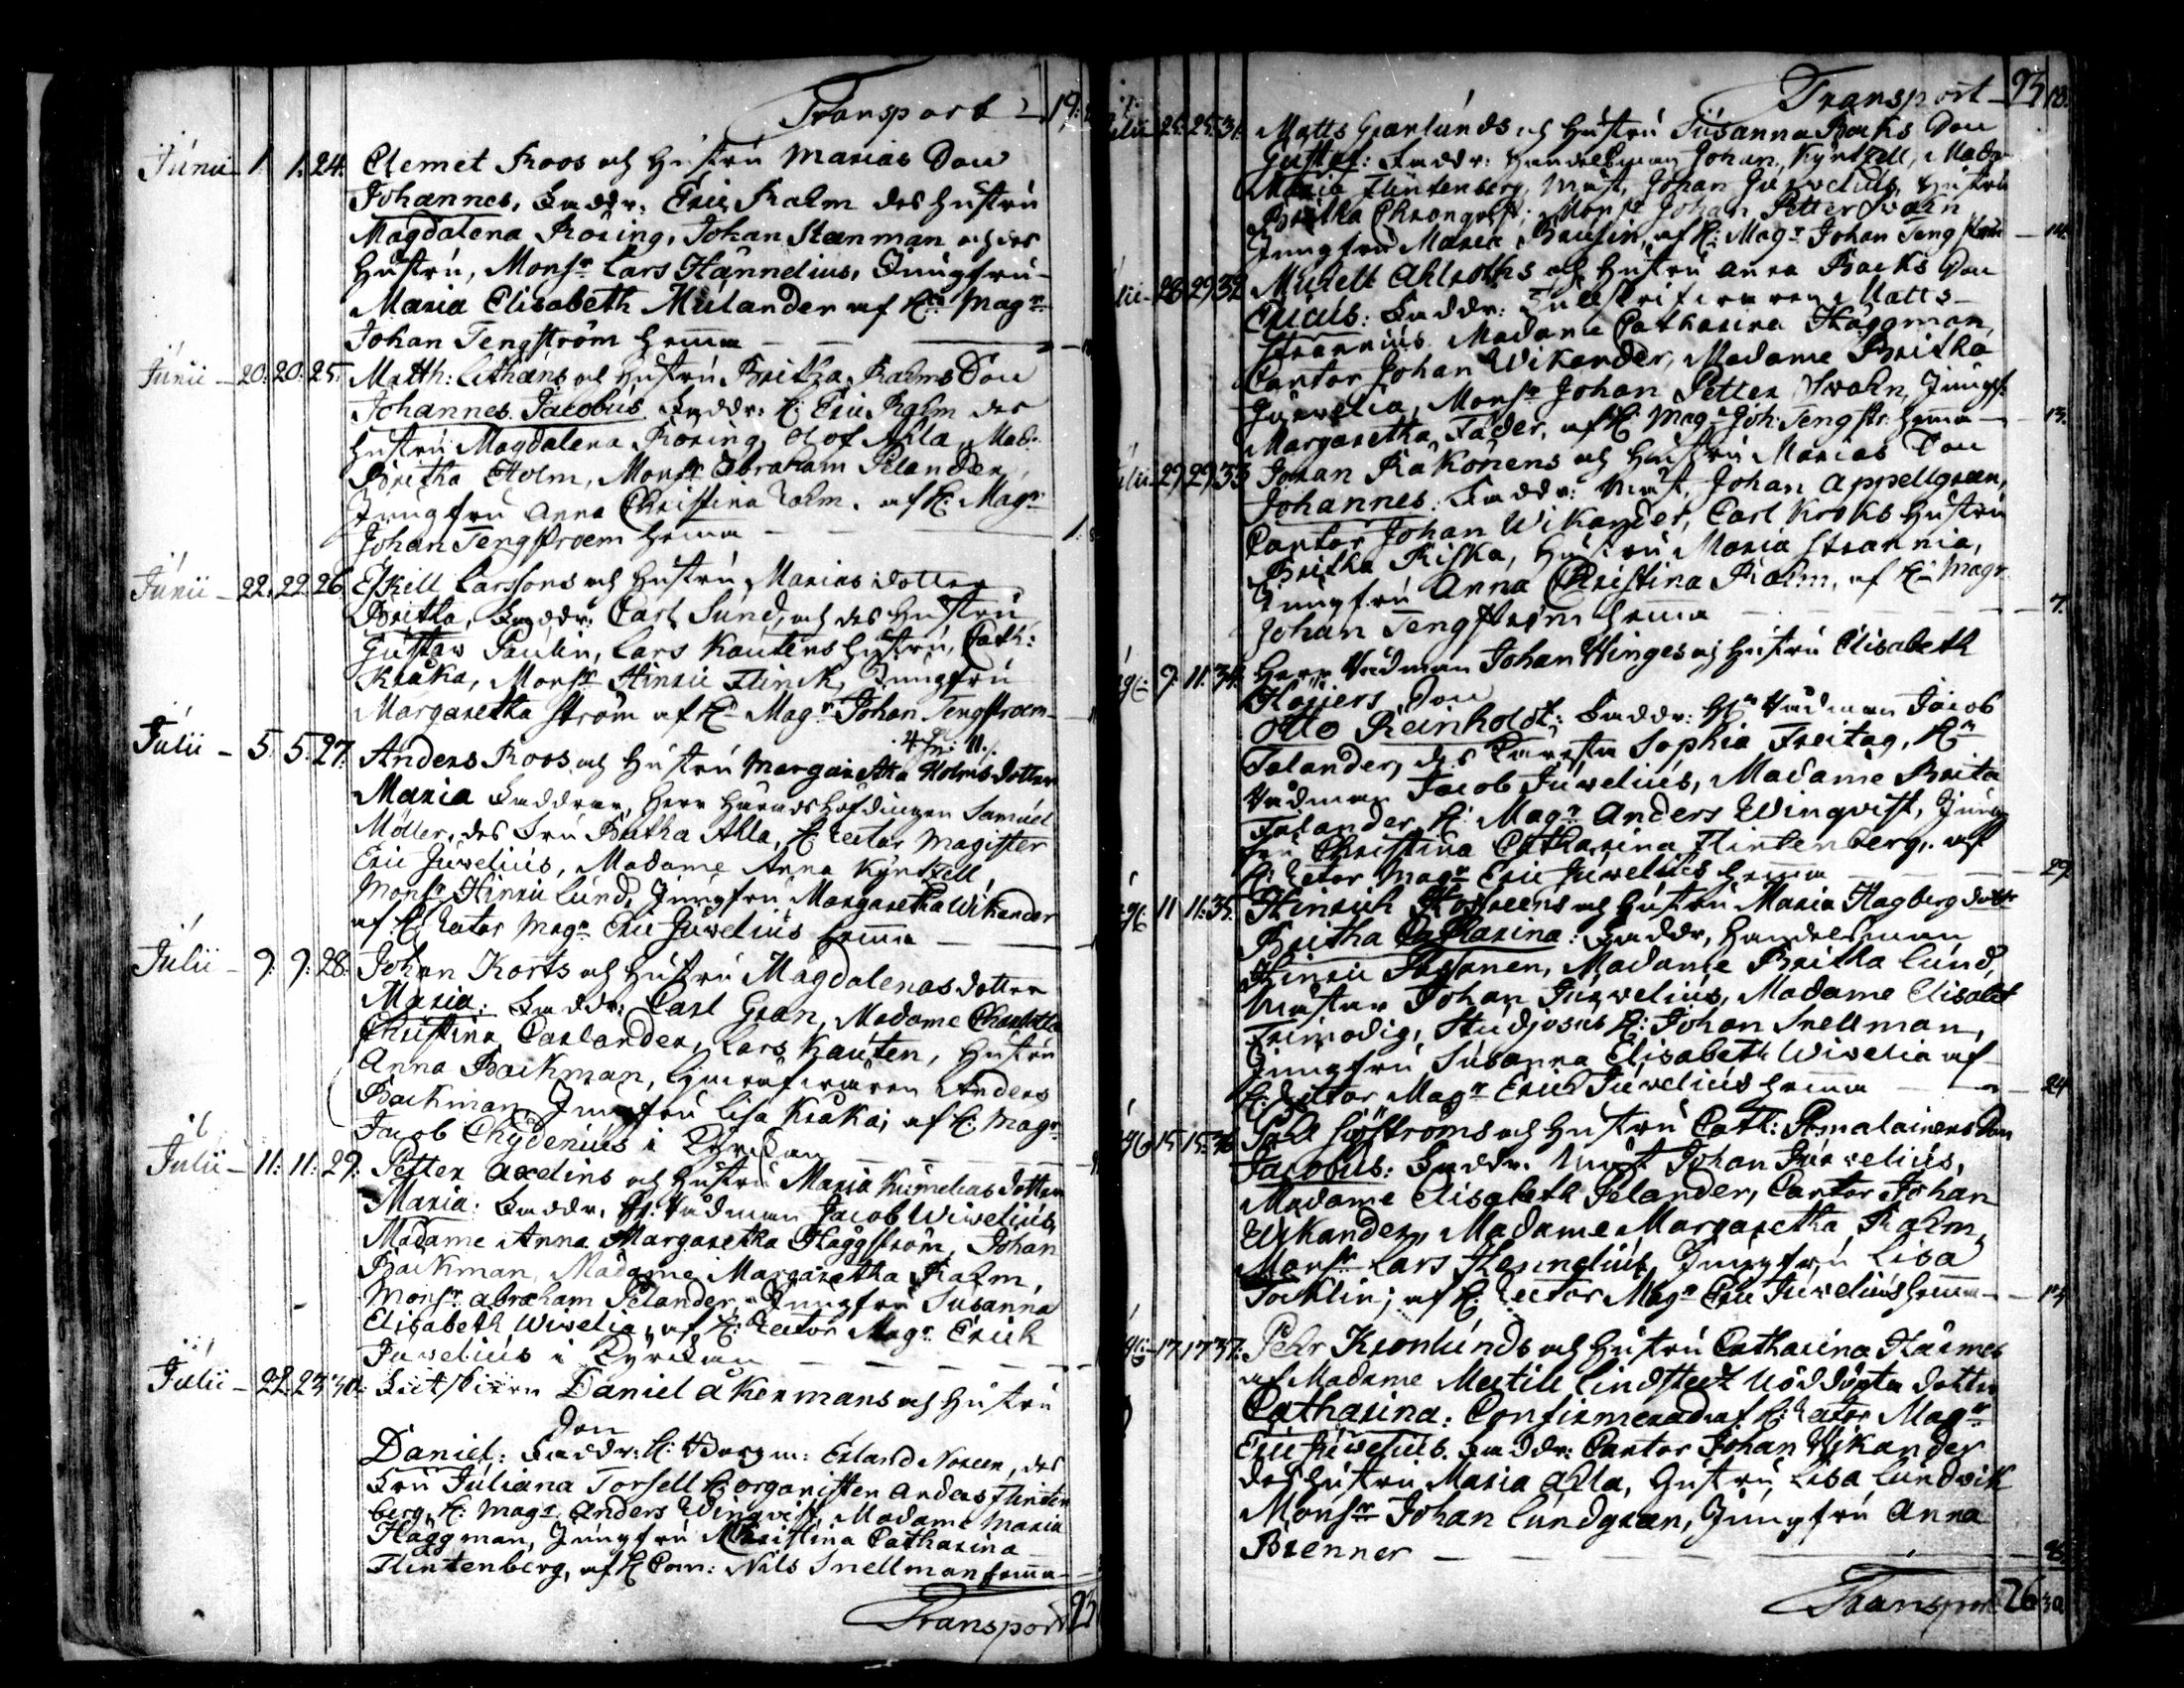 Transport 19:
Junii 1. 1. 24. Clemet Roos och Hustru Marias Son
Johannes, Faddr. Eric Kalm des Hustru
Magdalena Rosing, Johan Steenman och des
Hustru, Monsr Lars Hannelius, Jungfru
Maria Elisabeth Mulander af Hr Magr
Johan Tengström hema
Junii 20. 20. 25. Matth: Lithæns och Hustru Britha Kalms Son
Johannes Jacobus. Faddr: H. Eric Kalm des
Hustru Magdalena Rosing, Olof Ahla, Mad:
Britha Holm, Monsr Abraham Pelander,
Jungfru Anna Christina Kalm. af H: Magr
Johan Tengstroem hema 1:
Junii 22. 22. 26. Eskill Larssons och Hustru Marias dotter
Britha, Faddr: Carl Sund, och des Hustru
Gustaw Paulin, Lars Kautens Hustru, Cath:
Kråka, Monsr Hinric Flinck, Jungfru
Margaretha Ström af H: Magr Johan Tengstroem
Julii 5. 5. 27. Anders Roos och Hustru Margaretha Holms dotter
Maria Faddrar, Herr Häradshöfdingen Samuel
Möller, des Fru Britha Ahla, H. Rector Magister
Eric Juvelius, Madame Anna Kyntzell,
Monsr Hinric Lund, Jungfru Margaretha Wikander
af H Rector Magr Eric Juvelius hema
Julii 9: 9: 28. Johan Korts och Hustru Magdalenas dotter
Maria: Faddr: Carl Gran, Madame Charlotta
Christina Carlander, Lars Kauten, Hustru
Anna Backman, Anders
Backman, Jungfru Lisa Kråka; af H. Magr
Jacob Chydenius i Kyrckan
Julii 11: 11: 29. Petter Axelins och Hustru Maria Kumelias dotter
Maria: Faddr. H: Rådman Jacob Wivelius,
Madame Anna Margaretha Häggström, Johan
Backman, Madame Margaretha Kalm,
Monsr Abraham Pelander, Jungfru Susanna
Elisabeth Wivelia, af H: Rector Magr Erich
Juvelius i Kyrckan
Julii 22. 23. 30. Daniel Åkermans och Hustru
Son
Daniel: Faddr: H: Borgm: Erland Noreen, des
Fru Juliana Torsell H: organisten Anders Flinten
berg, H: Magr Anders Winqvist, Madame Maria
Häggman, Jungfru Christina Catharina
Flintenberg, af H Com: Nils Snellman hema
Transport 23
Transport 23 18.
25. 25. 31. Matts Granlunds och Hustru Susanna Backs Son
Gustaf: Faddr: Handelsman Johan Kyntzell, Mada
Maria Flintenberg, Mäst. Johan Juvelius, Hustru
Britha Cronqvist; Monsr Johan Petter Svahn
Jungfru Maria af H: Magr Johan Tengström 14.
28. 29. 32. Michell Ahlroths och Hustru Anna Backs Son
Ericus: Faddr: Matts
Madame Catharina Häggman,
Cantor Johan Wikander, Madame Britha
Juvelia, Monsr Johan Petter Svahn, Jungf:
Margaretha Fader, af H: Magr Joh: Tengstr: hema 13.
29. 29. 33. Johan Råkonens och Hustru Marias Son
Johannes: Faddr: Mäst. Johan Appellgren,
Cantor Johan Wikander, Carl Kroks Hustru
Britha Riska, Hustru Maria
Jungfru Anna Christina Kalm, af H: Magr
Johan Tengström hema 7.
9. 11. 34. Herr Rådman Johan Hinges och Hustru Elisabeth
Höijers Son
Otto Reinholdt: Faddr: Hr Rådman Jacob
Falander, des Sophia Freitag, Hr
Rådman Jacob Juvelius, Madame Brita
Falander, H: Magr Anders Winqvist, Jung
fru Christina Catharina Flintenberg, af
H: Rector Magr Eric Juvelius hema 29
11. 11: 35. Hinrich och Hustru Maria Hagberg dotter
Britha Catharina: Faddr, Handelsman
Hinric Madame Britha Lund,
Mästar Johan Juvelius, Madame Elisabet
Frimodig, Studjosus H: Johan Snellman,
Jungfru Susanna Elisabeth Wivelia af
H: Rector Magr Eric Juvelius hema 24
15. 15. 36. Pehr Siöströms och Hustru Cath: Son
Jacobus: Faddr. Mäst Johan Juvelius,
Madame Elisabeth Pelander, Cantor Johan
Wikander, Madame Margaretha Kalm,
Monsr Lars Hennelius, Jungfru Lisa
Tocklin; af H Rector Magr Eric Juvelius hema 13
17. 17. 37. Pehr Kronlunds och Hustru Catharina
af Madame Meetill Lindstedt Nöddöpta dotter
Catharina: Confirmerad af H: Rector Magr
Eric Juvelius. Faddr: Cantor Johan Wikander
des Hustru Maria Ahla, Hustru Lisa Lundvik
Monsr Johan Lundgren, Jungfru Anna
Brenner
Transport 26